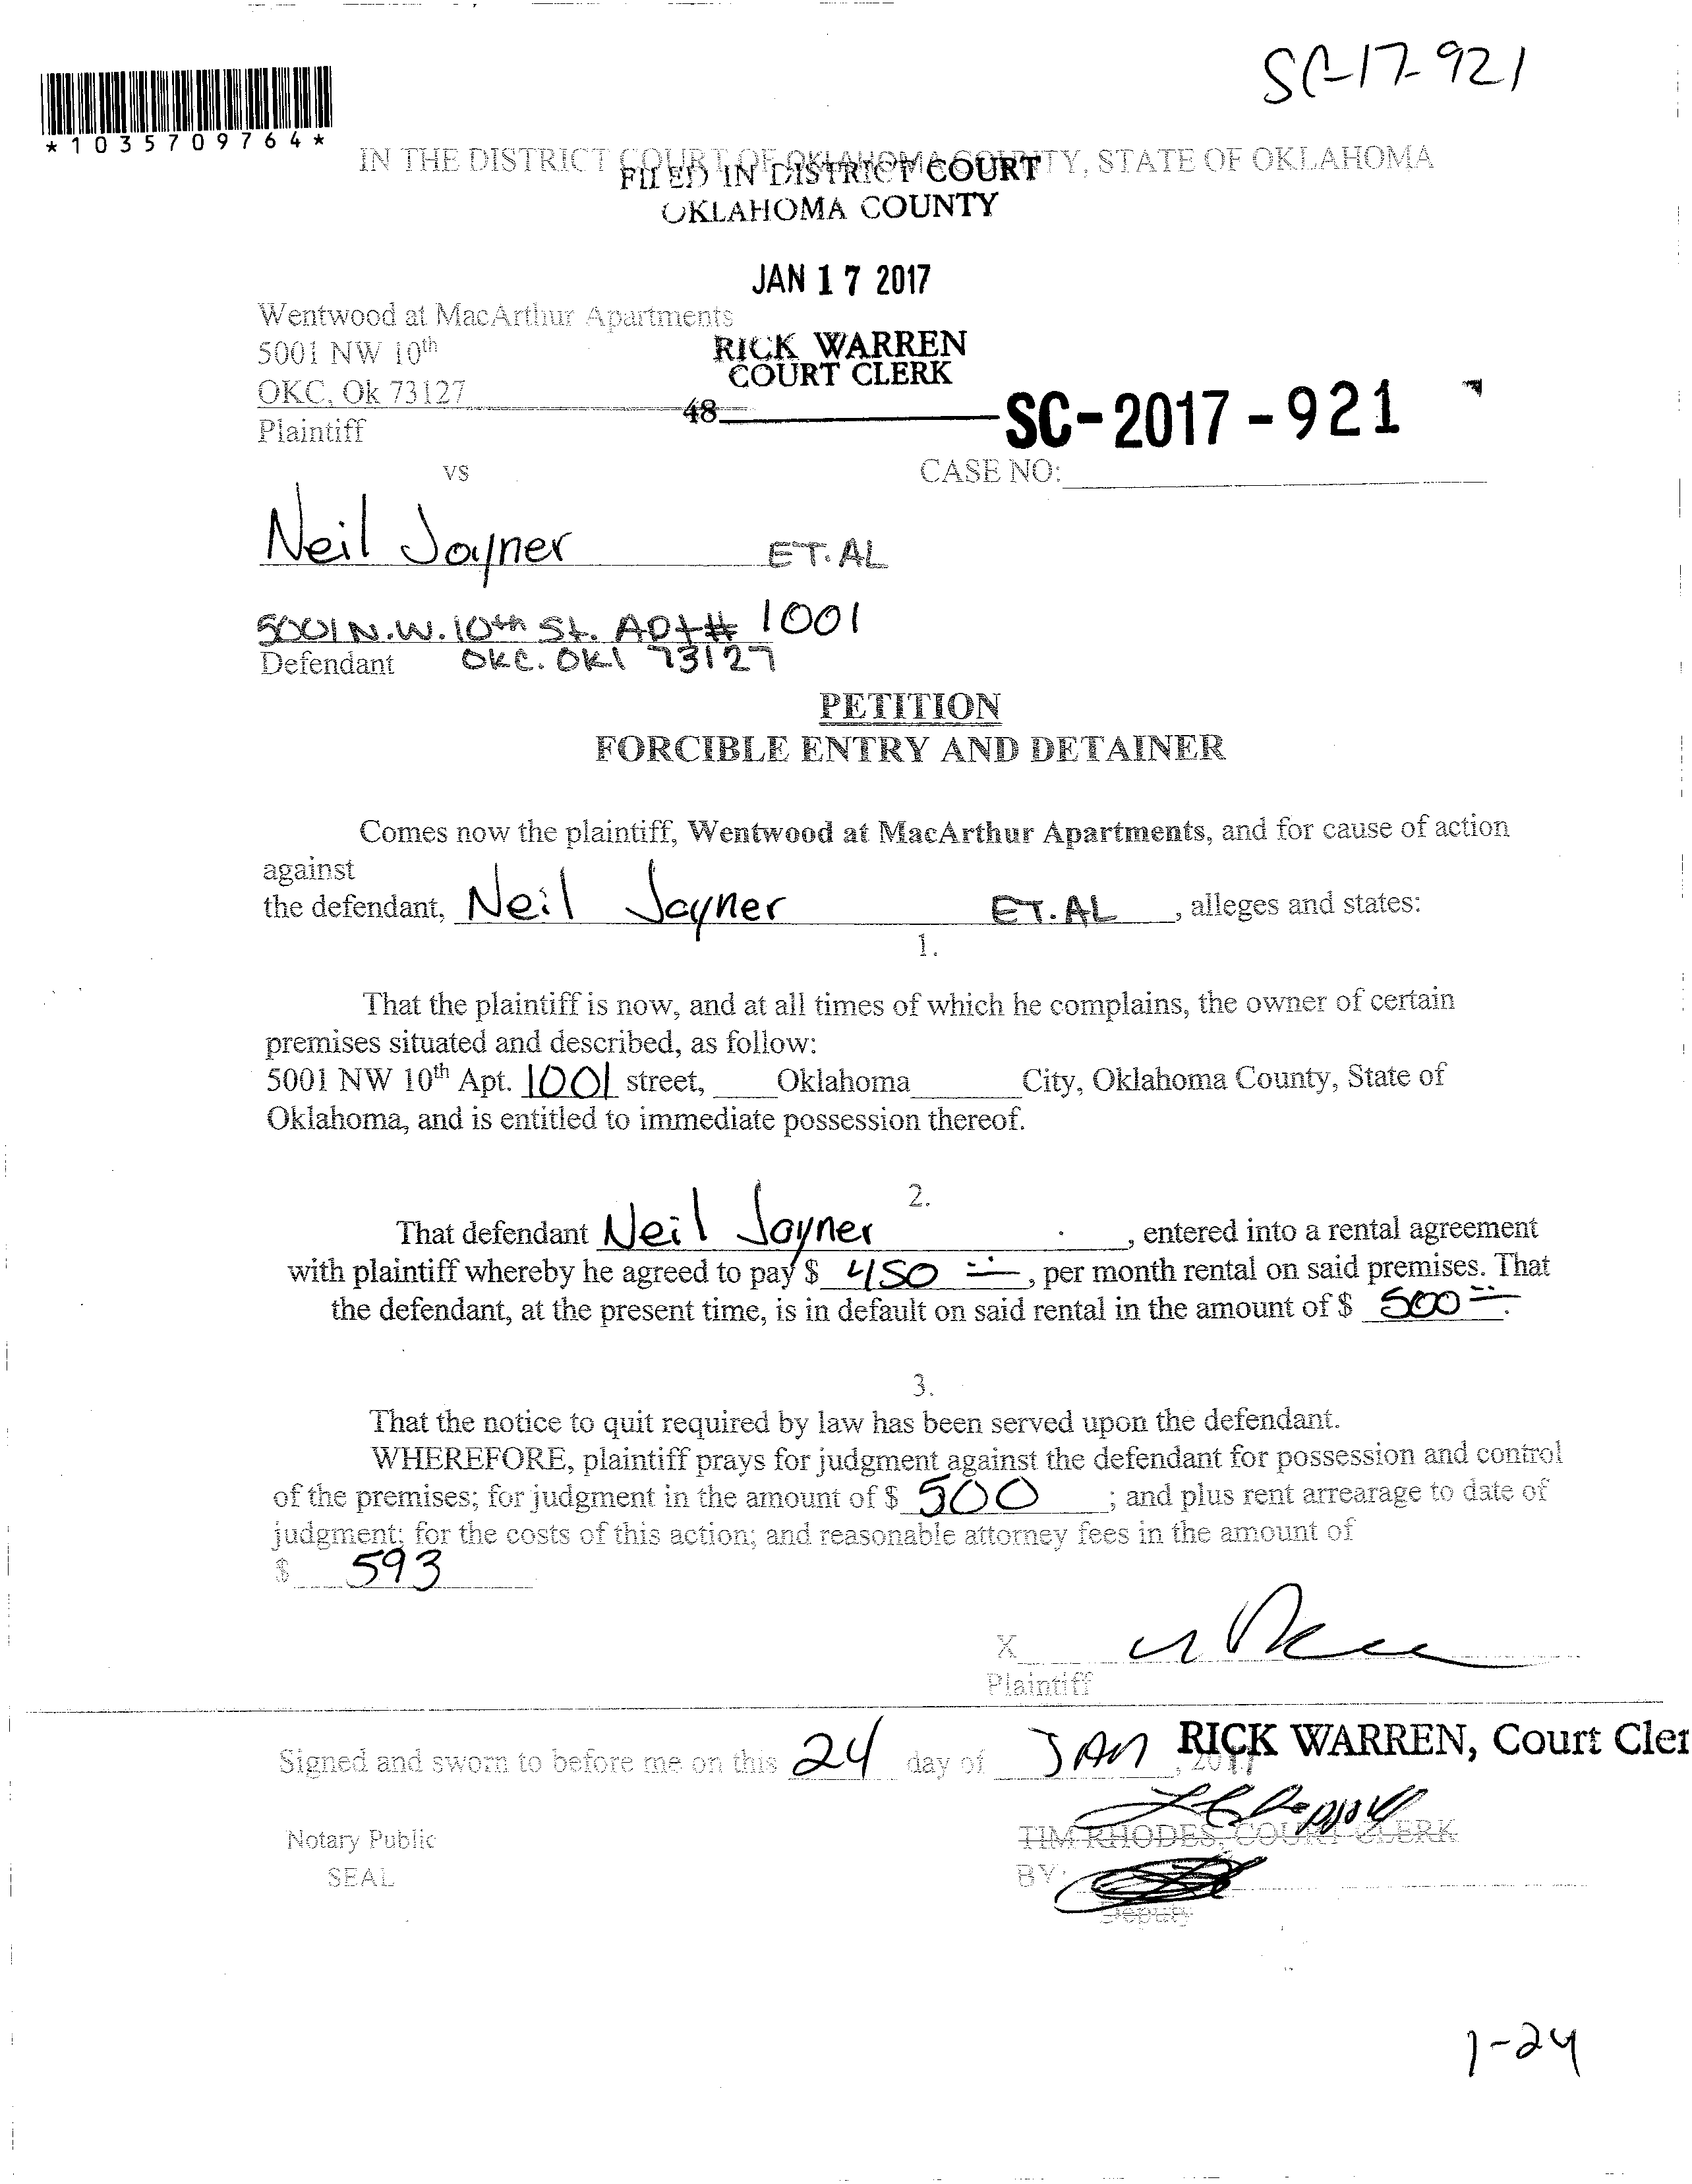 SC-17-921
*1035709764*
IN THE DISTRICT COURT OF OKLAHOMA COUNTY, STATE OF OKLAHOMA
FILED IN DISTRICT COURT
OKLAHOMA COUNTY
JAN 17 2017
Wentwood at MacArthur Apartments
5001 NW 10th
RICK WARREN
COURT CLERK
OKC, Ok 73127
48
SC-2017-921
Plaintiff
vs
CASE NO:
Neil Joyner ET. AL
5001 N.W. 10th St. Apt# 1001
Defendant OKC. OKl 73127
PETITION
FORCIBLE ENTRY AND DETAINER
Comes now the plaintiff, Wentwood at MacArthur Apartments, and for cause of action
against
the defendant, Neil Joyner ET. AL, alleges and states:
1.
That the plaintiff is now, and at all times of which he complains, the owner of certain
premises situated and described, as follow:
5001 NW 10th Apt. 1001 street, Oklahoma City, Oklahoma County, State of
Oklahoma, and is entitled to immediate possession thereof.
2.
That defendant Neil Joyner, entered into a rental agreement
with plaintiff whereby he agreed to pay $ 450, per month rental on said premises. That
the defendant, at the present time, is in default on said rental in the amount of $ 500.
3.
That the notice to quit required by law has been served upon the defendant.
WHEREFORE, plaintiff prays for judgment against the defendant for possession and control
of the premises; for judgment in the amount of $ 500; and plus rent arrearage to date of
judgment; for the costs of this action; and reasonable attorney fees in the amount of
$ 593
X
Plaintiff
Signed and sworn to before me on this 24 day of JAN, 2017
RICK WARREN, Court Cler
Notary Public
TIM RHODES, COURT CLERK
SEAL
BY:
Deputy
1-24